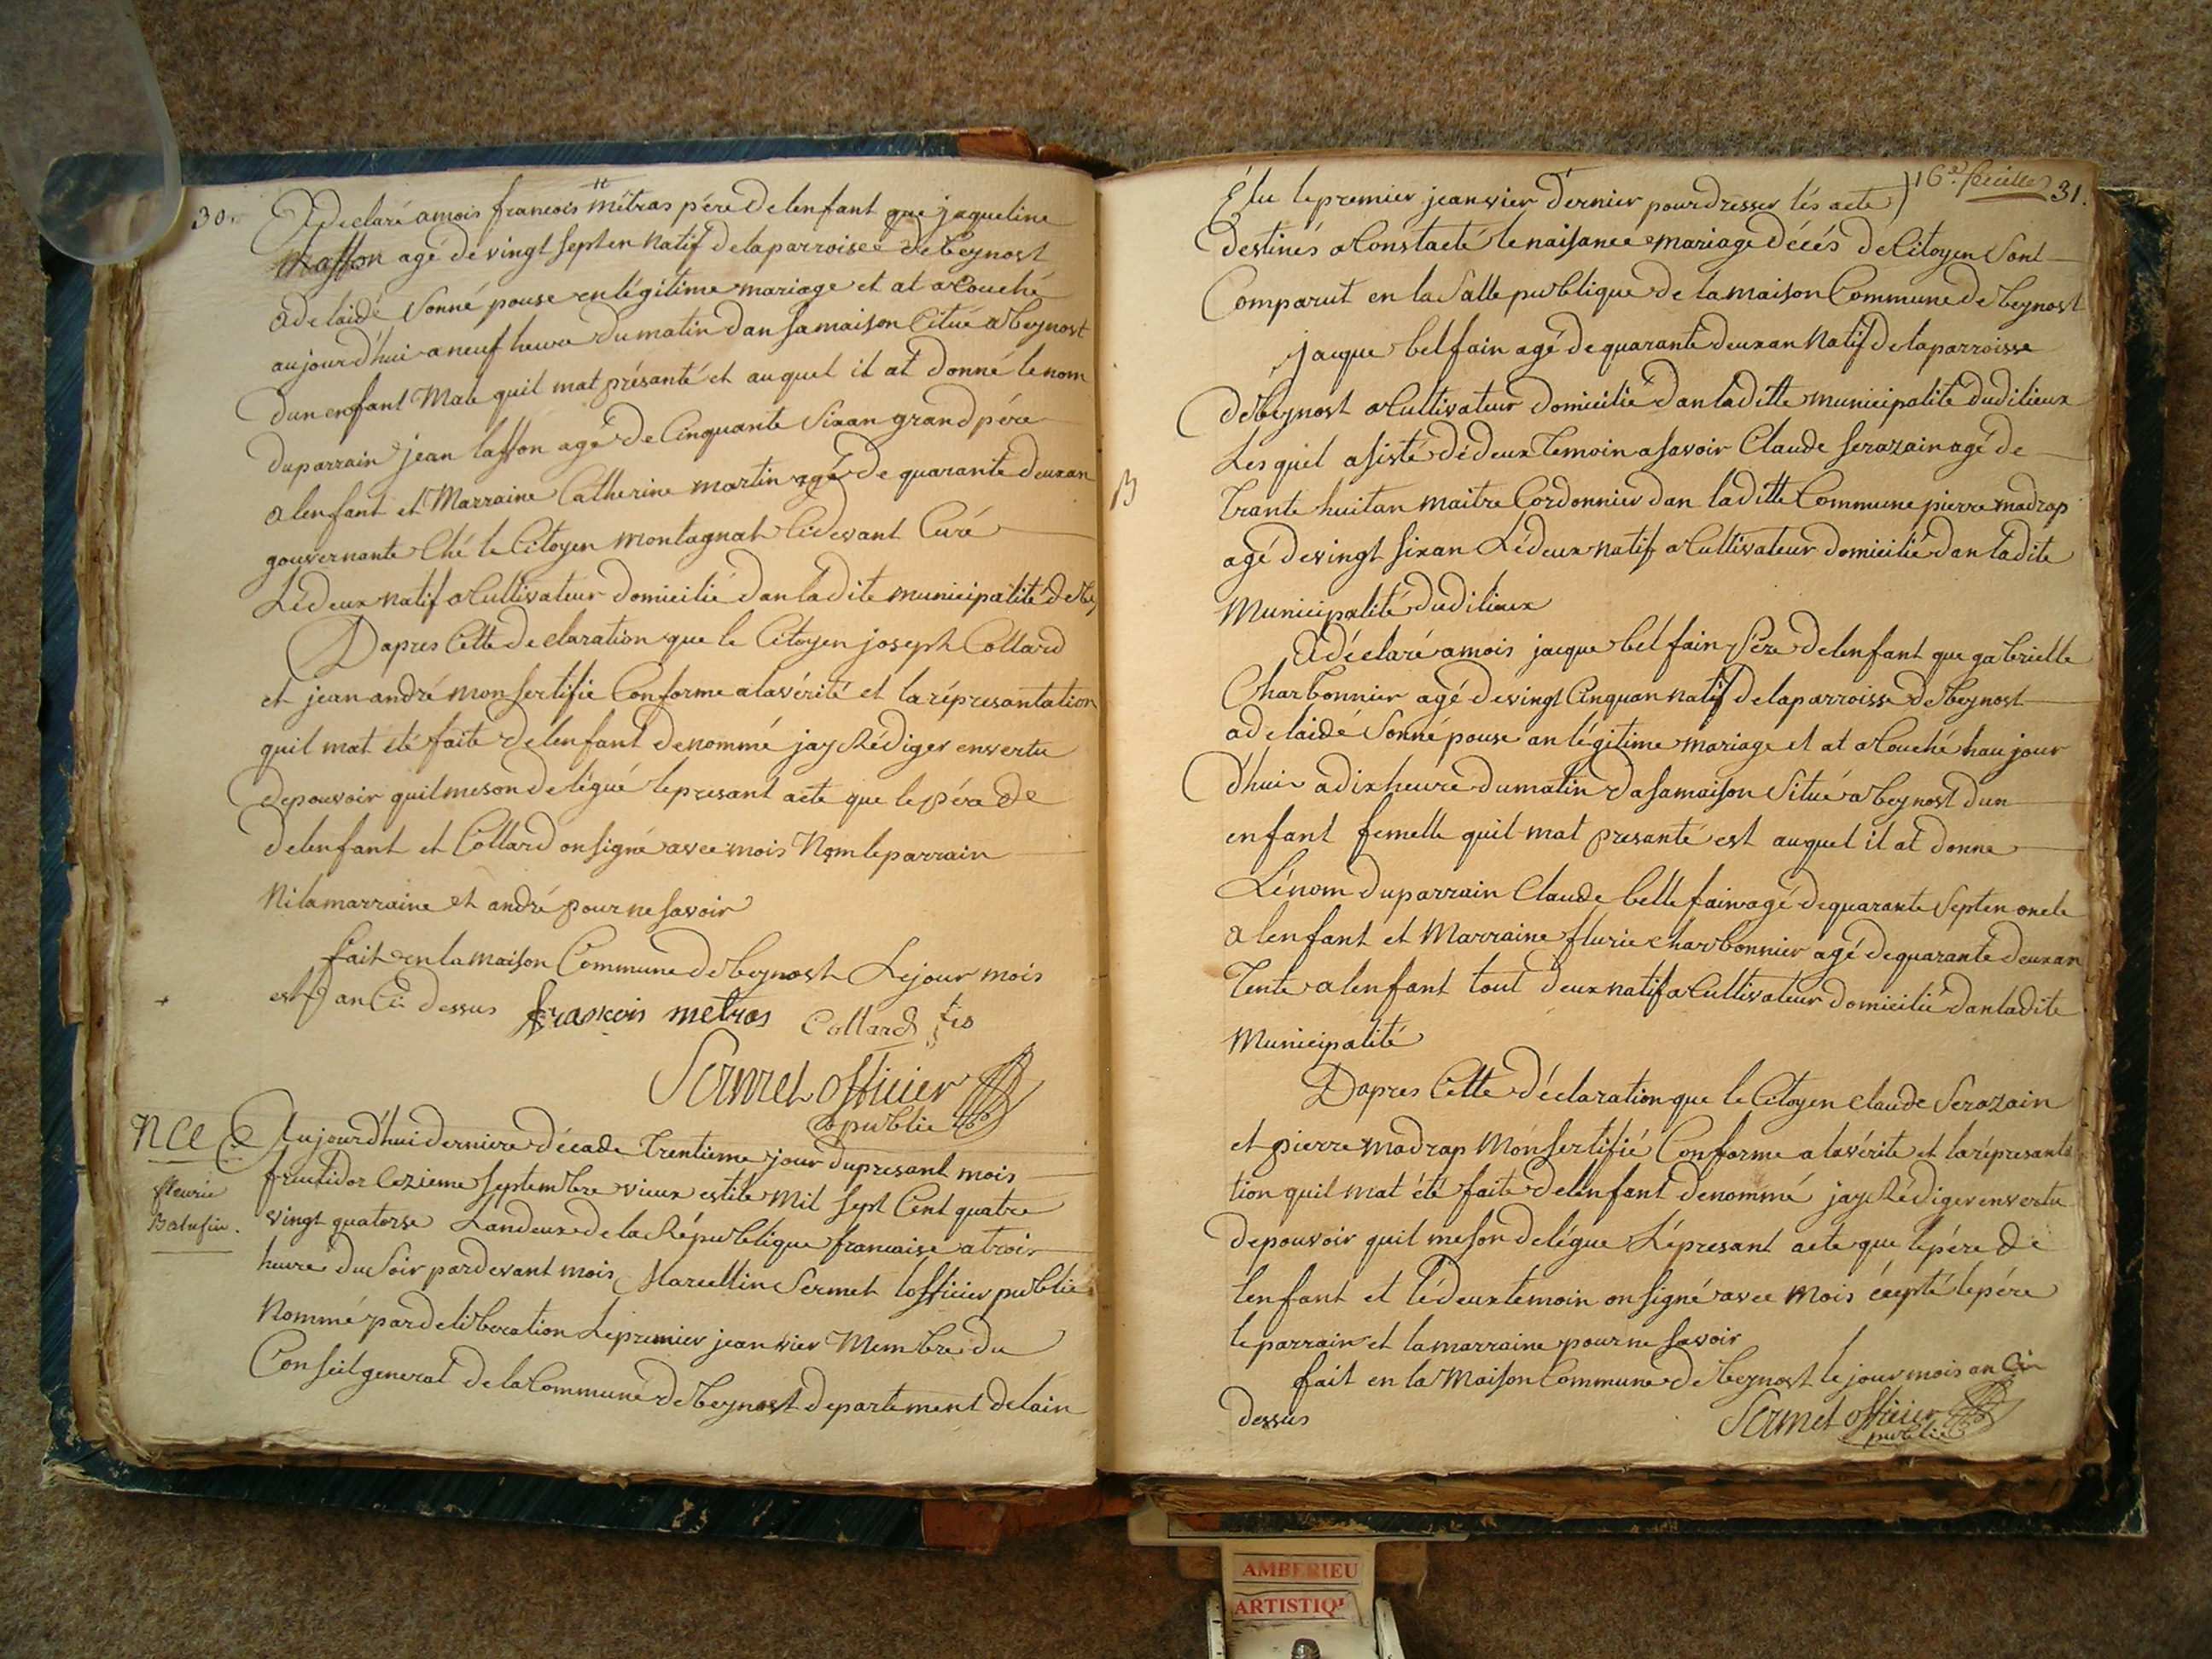 30.
A declaré a mois francois métras pére de lenfant que jaqueline
Masson agé de vingt septen natif de la parroisee de beynost
adelaidé Sonné pouse en légitime mariage et at acouché
aujourd'hui a neuf heure du matin dan sa maison Citué a beynost
dun enfant Male quil mat présanté et au quel il at donné le nom
du parrain jean lasson agé de Cinquante Sixan grand pére
a lenfant et Marraine Catherine martin agé de quarante deuxan
gouvernante Ché le Citoyen montagnat Cidevant Curé
Lédeux natif a Cultivateur domicilié dan la dite municipalité de be
Dapres Cette declaration que le Citoyen joseph Collard
et jean andré mon sertifié Conforme a la vérité et la représantation
quil mat été faite de lenfant denommé jay Rédiger en vertu
de pouvoir quil me son delégué le presant acte que le pére de
de lenfant et Collard on signé avec mois Nom le parrain
Ni la marraine et andré pour ne savoir
fait en la maison Commune de beynost Le jour mois
est an Ci dessus francois metras Collard
Sermet officier
public
NCe
fleurie
Balufin.
Aujourd'hui derniere décade Trentieme jour du presant mois
fructidor Cezieme septembre vieux estile Mil sept Cent quatre
vingt quatorse Lan deux de la République francaise a trois
heure du Soir pardevant mois Marcellin Sermet lofficier public
Nommé par deliberation Le premier jeanvier Membre du
Conseil general de la Commune de Beynost departement de lain
16.e feuille 31.
Élu le premier jeanvier dernier pour dresser lés acte
destinés a Constaté le naisance mariage décés de Citoyen Sont
Comparut en la Salle publique de la maison Commune de beynost
jacque belfain agé de quarante deuxan Natif de la parroisse
de beynost a Cultivateur domicilié dan la ditte municipalité du dilieux
Les quel asisté dé deux temoin a savoir Claude serazain agé de
B
Trante huitan maitre Cordonnier dan la ditte Commune pierre madrap
agé de vingt sixan Lédeux natif a Cultivateur domicilié dan la dite
Municipalité du dilieux
A déclaré a mois jacque bel fain Pére de lenfant que gabrielle
Charbonnier agé de vingt Cinquan natif de la parroisse de beynost
adelaidé Sonné pouse an légitime mariage et at acouché haujour
d'hui a dix heure du matin da sa maison Situé a beynost dun
enfant femelle quil mat presanté est auquel il at donne
Lénom du parrain Claude belle fain agé de quarante Septen oncle
a lenfant et Marraine flurie charbonnier agé de quarante deuxan
Tente a lenfant tout deux natif a Cultivateur domicilié dan la dite
Municipalité
Dapres Cette déclaration que le Citoyen Claude Serazain
et pierre madrap mon sertifié Conforme a la vérite et la représanta
tion quil mat été faite de lenfant denommé jay Rédiger en vertu
de pouvoir quil me son delégue Lé presant acte que lé pére de
lenfant et lédeux temoin on signé avec mois écepté le pére
le parrain et la marraine pour ne savoir
fait en la Maison Commune de beynost le jour mois an Ci
dessus
Sermet officier
public
AMBERIEU
ARTISTIQ